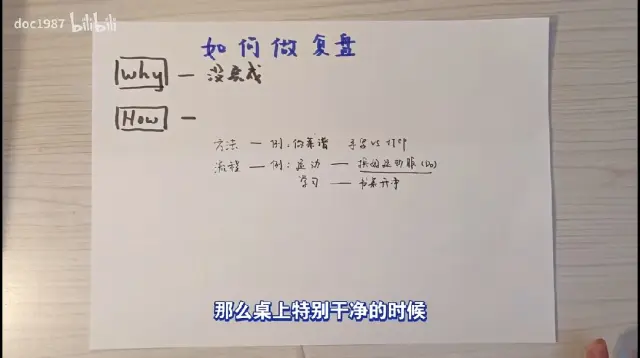 doc1987 bilibili
如何做复盘
Why — 没完成
How —
方法 — 例:做菜谱 手写 vs
流程 — 例:运动 — 换回运动服 (Do)
学习 — 书桌干净
那么桌上特别干净的时候